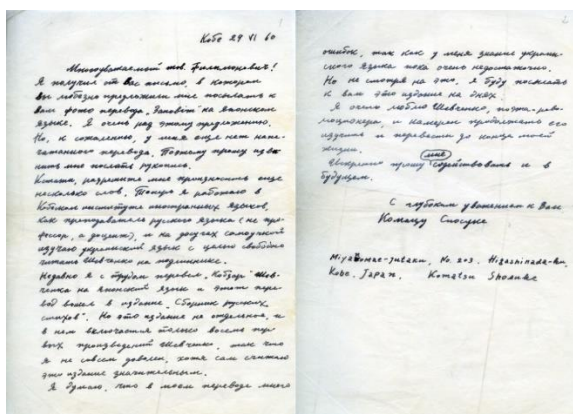 1
Кобе 29 VI 60
Многоуважаемый тов. Филимонович!
Я получил от Вас письмо, в котором
вы любезно предложили мне посылать к
вам фото перевода „Заповіт" на японском
языке. Я очень рад этому предложению.
Но, к сожалению, у меня ещё нет напе-
чатанного перевода. Поэтому прошу изви-
нить мне послать рукопись.
Кстати, разрешите мне произносить ещё
несколько слов. Теперь я работаю в
Кобском институте иностранных языков,
как преподаватель русского языка (не про-
фессор, а доцент), и на досугах самоучкой
изучаю украинский язык с целью свободно
читать Шевченко на подлиннике.
Недавно я с трудом перевел „Кобзарь" Шев-
ченка на японский язык и этот пере-
вод вошел в издание „Сборник русских
стихов". Но это издание не отдельное, и
в нем включается только восемь пер-
вых произведений Шевченко, так что
я не совсем доволен, хотя сам считаю
это издание значительным.
Я думаю, что в моем переводе много
2
ошибок, так как у меня знание украин-
ского языка пока очень недостаточно.
Но не смотря на это, я буду посылать
к вам это издание на днях.
Я очень люблю Шевченко, поэта-рево-
люционера, и намерен продолжать его
изучать и переводить до конца моей
жизни.
Искренно прошу мне содействовать и в
будущем.
С глубоким уважением к Вам
Комацу Сиосуке
Miyamae-jutaku, No. 203. Higashinada-ku,
Kobe, Japan. Komatsu Shosuke